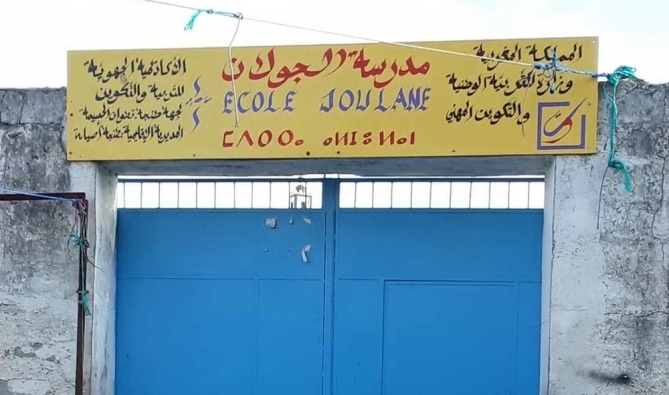 المملكة المغربية
وزارة التربية الوطنية
والتكوين المهني
مدرسة الجولان
ECOLE JOULANE
الأكاديمية الجهوية
للتربية والتكوين
لجهة طنجة تطوان الحسيمة
المديرية الإقليمية طنجة أصيلة